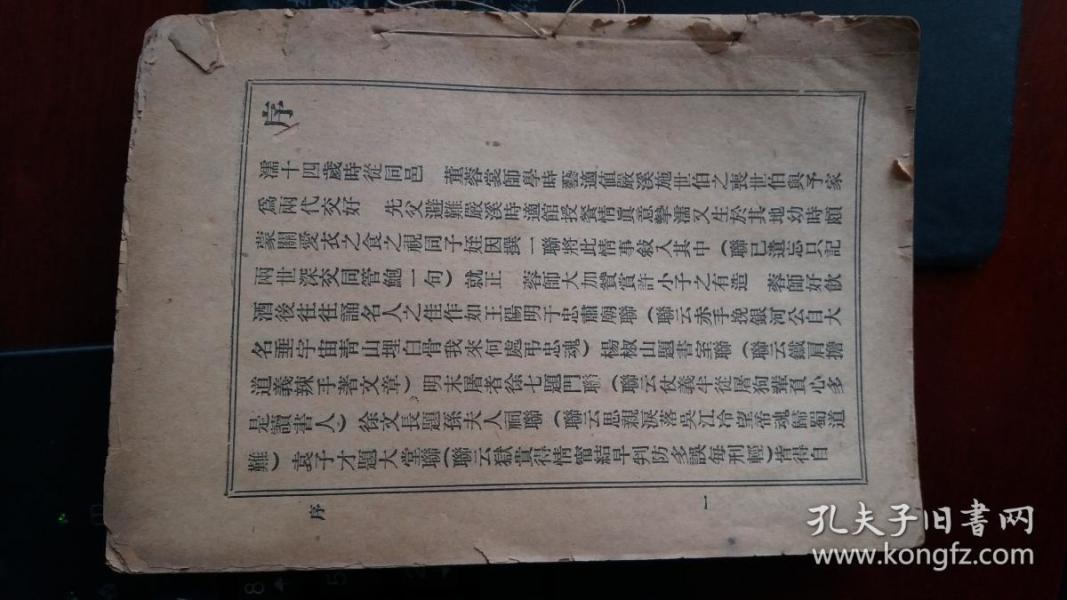 序
濡十四歲時從同邑　董蓉裳師學時藝適值嚴溪施世伯之喪世伯與予家
爲兩代交好　先父避難嚴溪時適館授餐情眞意摯濡又生於其地幼時頗
蒙關愛衣之食之視同子姪因撰一聯將此情事敍入其中（聯已遺忘只記
兩世深交同管鮑一句）就正　蓉師大加贊賞許小子之有造　蓉師好飲
酒後往往誦名人之佳作如王陽明于忠肅廟聯（聯云赤手挽銀河公自大
名垂宇宙靑山埋白骨我來何處弔忠魂）楊椒山題書室聯（聯云鐵肩擔
道義辣手著文章）明末屠者徐七題門聯（聯云仗義半從屠狗輩負心多
是讀書人）徐文長題孫夫人祠聯（聯云思親淚落吳江冷望帝魂歸蜀道
難）袁子才題大堂聯（聯云獄貴得情甯結早判防多誤每刑輕）皆得自
序
一
孔夫子旧書网
www.kongfz.com